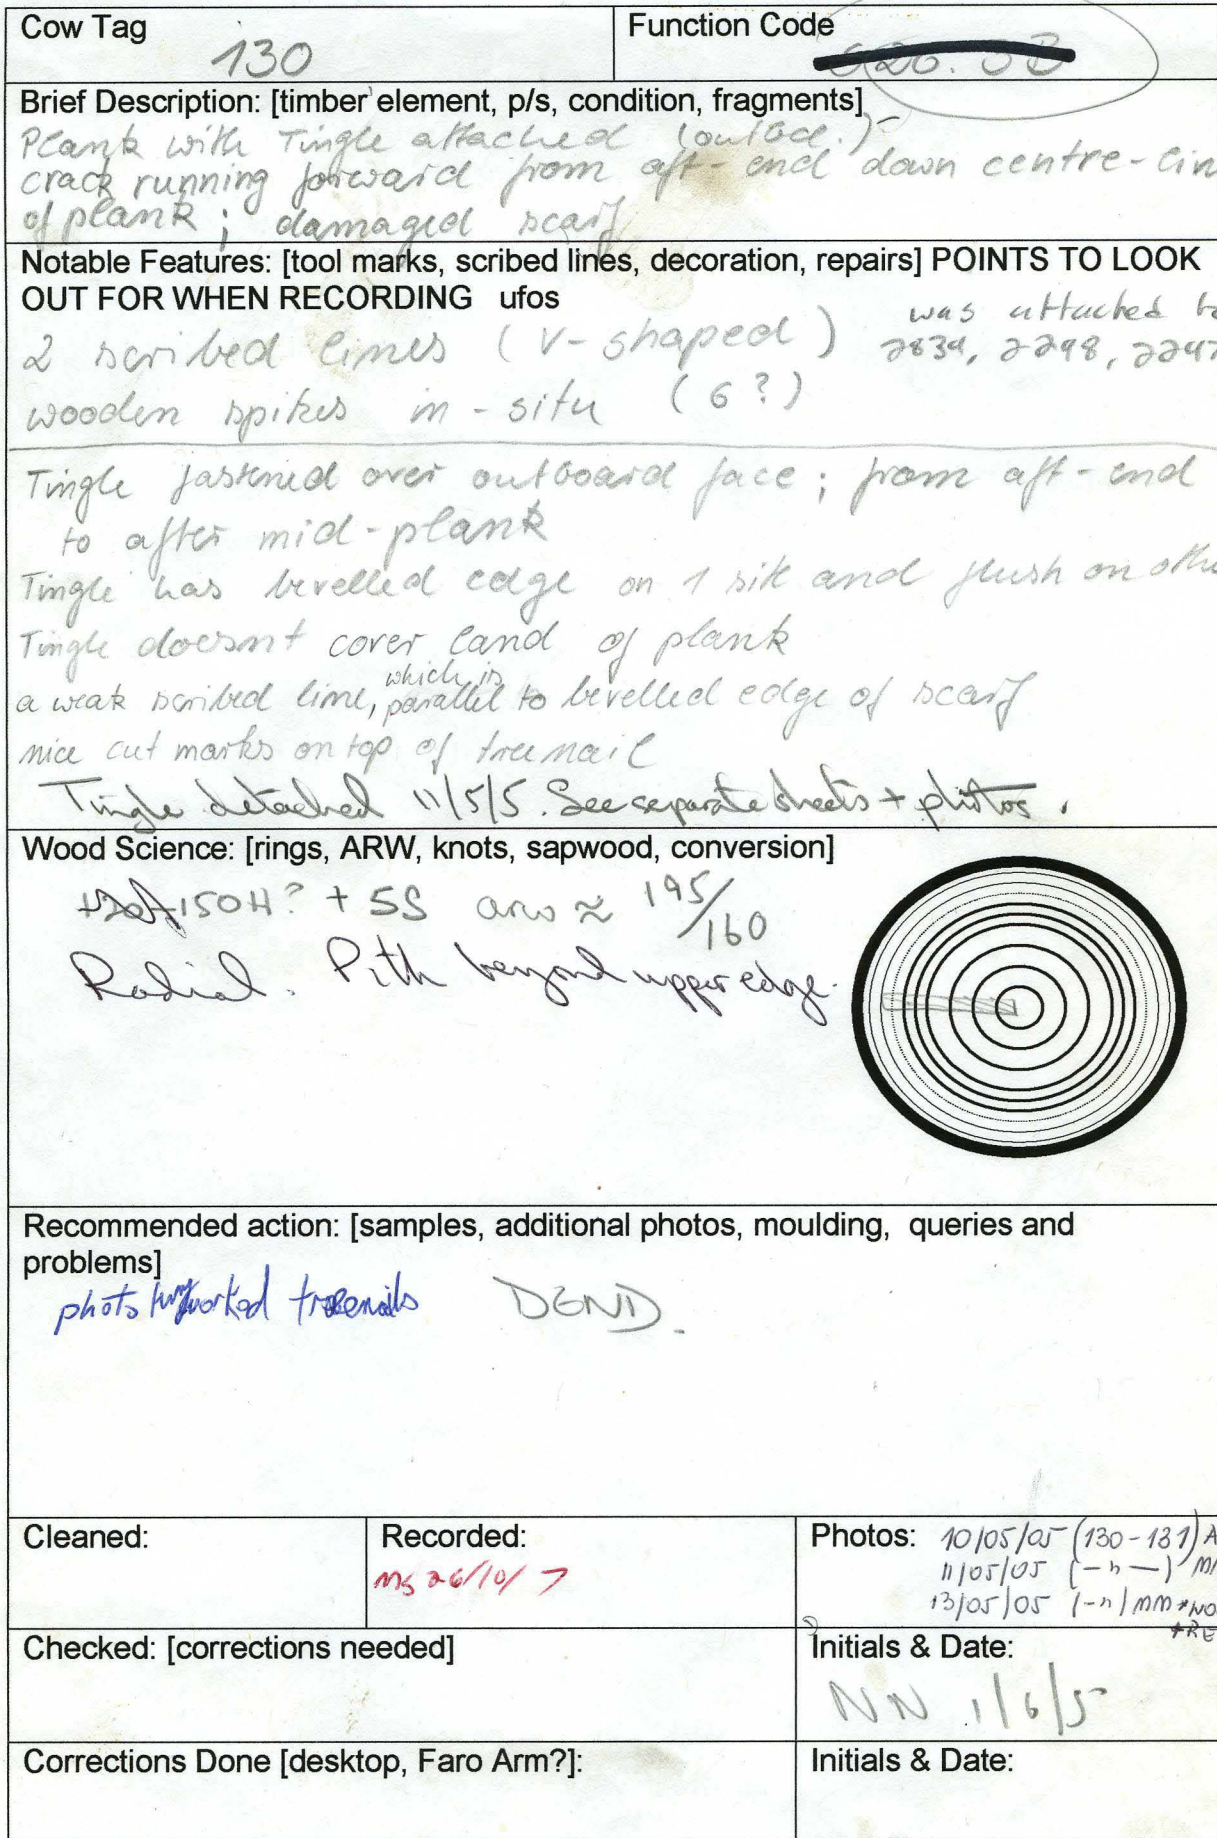 Cow Tag
130
Function Code
Brief Description: [timber element, p/s, condition, fragments]
Plank with Tingle attached (outbd.)-
crack running forward from aft-end down centre-lin
of plank; damaged scarf
Notable Features: [tool marks, scribed lines, decoration, repairs] POINTS TO LOOK
OUT FOR WHEN RECORDING ufos
was attached to
2 scribed lines (V-shaped)
2834, 2298, 2297
wooden spikes in-situ (6?)
Tingle fastened over outboard face; from aft-end
to after mid-plank
Tingle has bevelled edge on 1 side and flush on othe
Tingle doesnt cover land of plank
a weak scribed line, which is parallel to bevelled edge of scarf
nice cut marks on top of treenail
Tingle detached 11/5/5. See separate sheets + photos.
Wood Science: [rings, ARW, knots, sapwood, conversion]
150H? + 5S arw ≈ 195/160
Radial. Pith beyond upper edge.
Recommended action: [samples, additional photos, moulding, queries and
problems]
photo worked treenails DEND.
Cleaned:
Recorded:
MS 26/10/7
Photos: 10/05/05 (130-131) A
11/05/05 (-n-) M
13/05/05 (-n) MM *NO
+RE
Checked: [corrections needed]
Initials & Date:
NN 1/6/5
Corrections Done [desktop, Faro Arm?]:
Initials & Date: